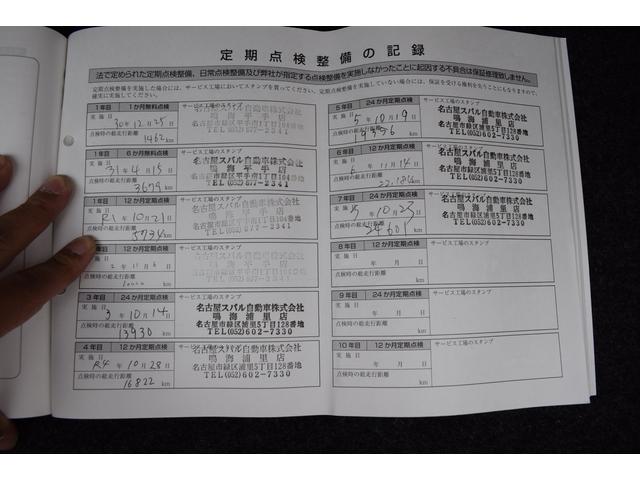 定期点検整備の記録
法で定められた定期点検整備、日常点検整備及び弊社が指定する点検整備を実施しなかったことに起因する不具合は保証修理致しません。
定期点検整備を実施した場合には、サービス工場においてスタンプを貰ってください。定期点検整備を実施していない場合には、保証を受ける権利を失うこともありますので、
確実に実施してください。
1年目 1か月無料点検 サービス工場のスタンプ
実施日
30年12月25日
点検時の総走行距離
1462km
名古屋スバル自動車株式会社
鳴海平手店
名古屋市緑区平手南1丁目104番地
TEL(052)877-2341
1年目 6か月無料点検 サービス工場のスタンプ
実施日
31年4月15日
点検時の総走行距離
3679km
名古屋スバル自動車株式会社
鳴海平手店
TEL(052)877-2341
1年目 12か月定期点検 サービス工場のスタンプ
実施日
R1年10月21日
点検時の総走行距離
5734km
名古屋スバル自動車株式会社
12か月定期点検 サービス工場のスタンプ
2年11月6日
点検時の総走行距離
km
3年目 24か月定期点検 サービス工場のスタンプ
実施日
3年10月14日
点検時の総走行距離
13930km
名古屋スバル自動車株式会社
鳴海浦里店
名古屋市緑区浦里5丁目128番地
TEL(052)602-7330
4年目 12か月定期点検 サービス工場のスタンプ
実施日
R4年10月28日
点検時の総走行距離
16822km
名古屋スバル自動車株式会社
鳴海浦里店
名古屋市緑区浦里5丁目128番地
TEL(052)602-7330
5年目 24か月定期点検 サービス工場のスタンプ
実施日
5年10月19日
点検時の総走行距離
km
名古屋スバル自動車株式会社
鳴海浦里店
名古屋市緑区浦里5丁目128番地
TEL(052)602-7330
6年目 12か月定期点検 サービス工場のスタンプ
実施日
6年11月14日
点検時の総走行距離
km
名古屋スバル自動車株式会社
鳴海浦里店
名古屋市緑区浦里5丁目128番地
TEL(052)602-7330
7年目 24か月定期点検 サービス工場のスタンプ
実施日
年10月23日
点検時の総走行距離
24601km
名古屋スバル自動車株式会社
鳴海浦里店
名古屋市緑区浦里5丁目128番地
TEL(052)602-7330
8年目 12か月定期点検 サービス工場のスタンプ
実施日
年 月 日
点検時の総走行距離
km
9年目 24か月定期点検 サービス工場のスタンプ
実施日
年 月 日
点検時の総走行距離
km
10年目 12か月定期点検 サービス工場のスタンプ
実施日
年 月 日
点検時の総走行距離
km